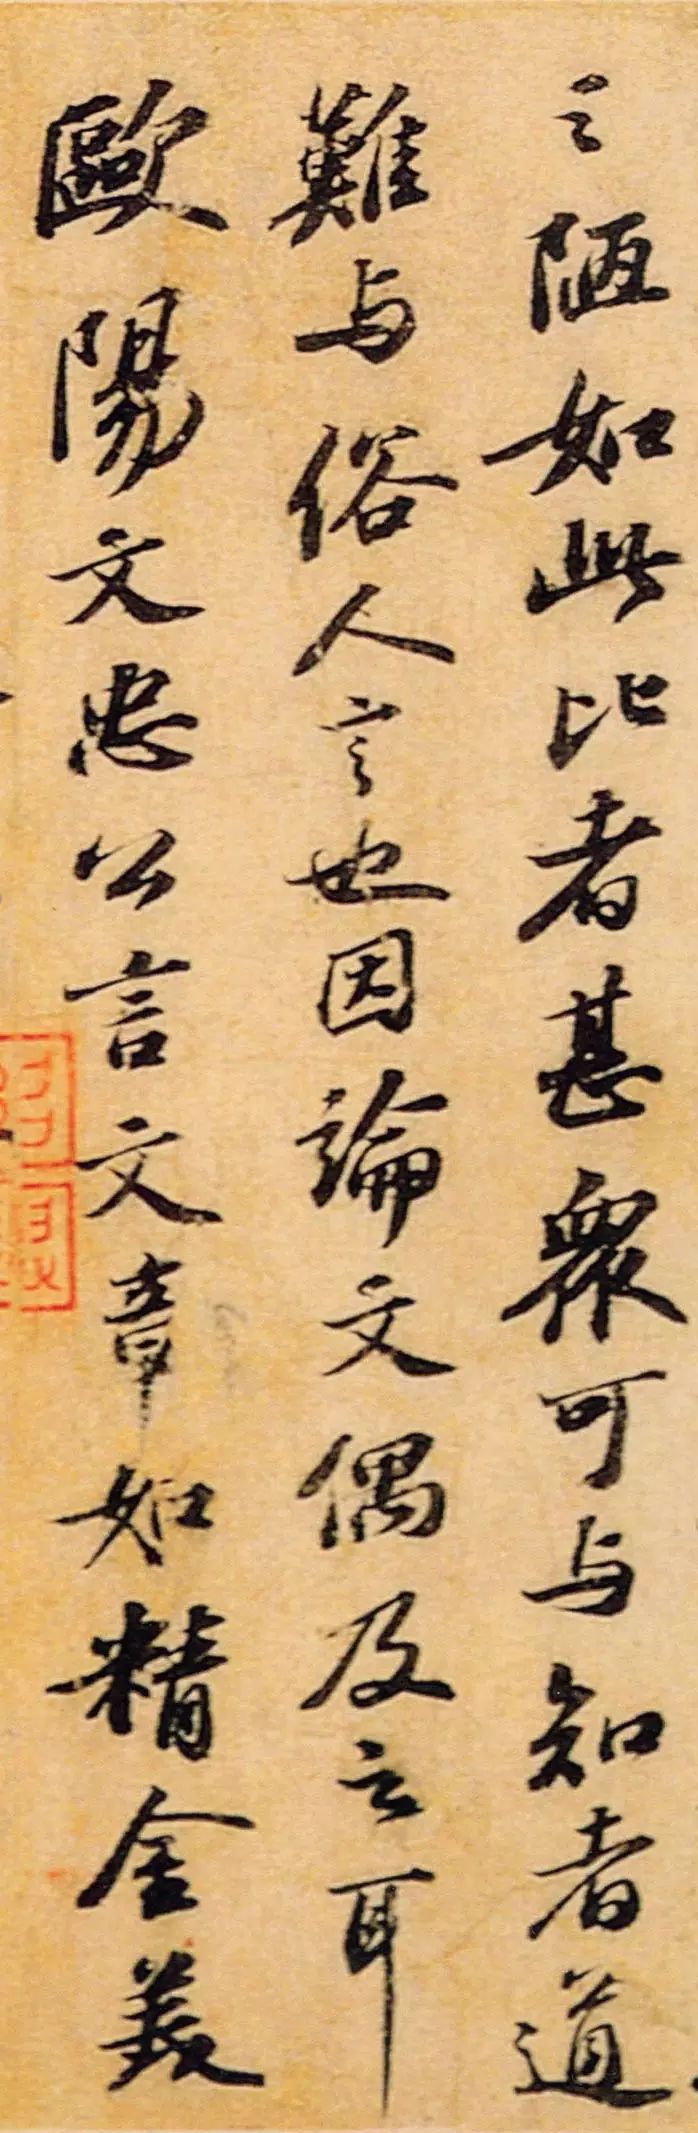 之陋如此比者甚眾可与知者道
難与俗人言也因論文偶及之耳
歐陽文忠公言文章如精金美